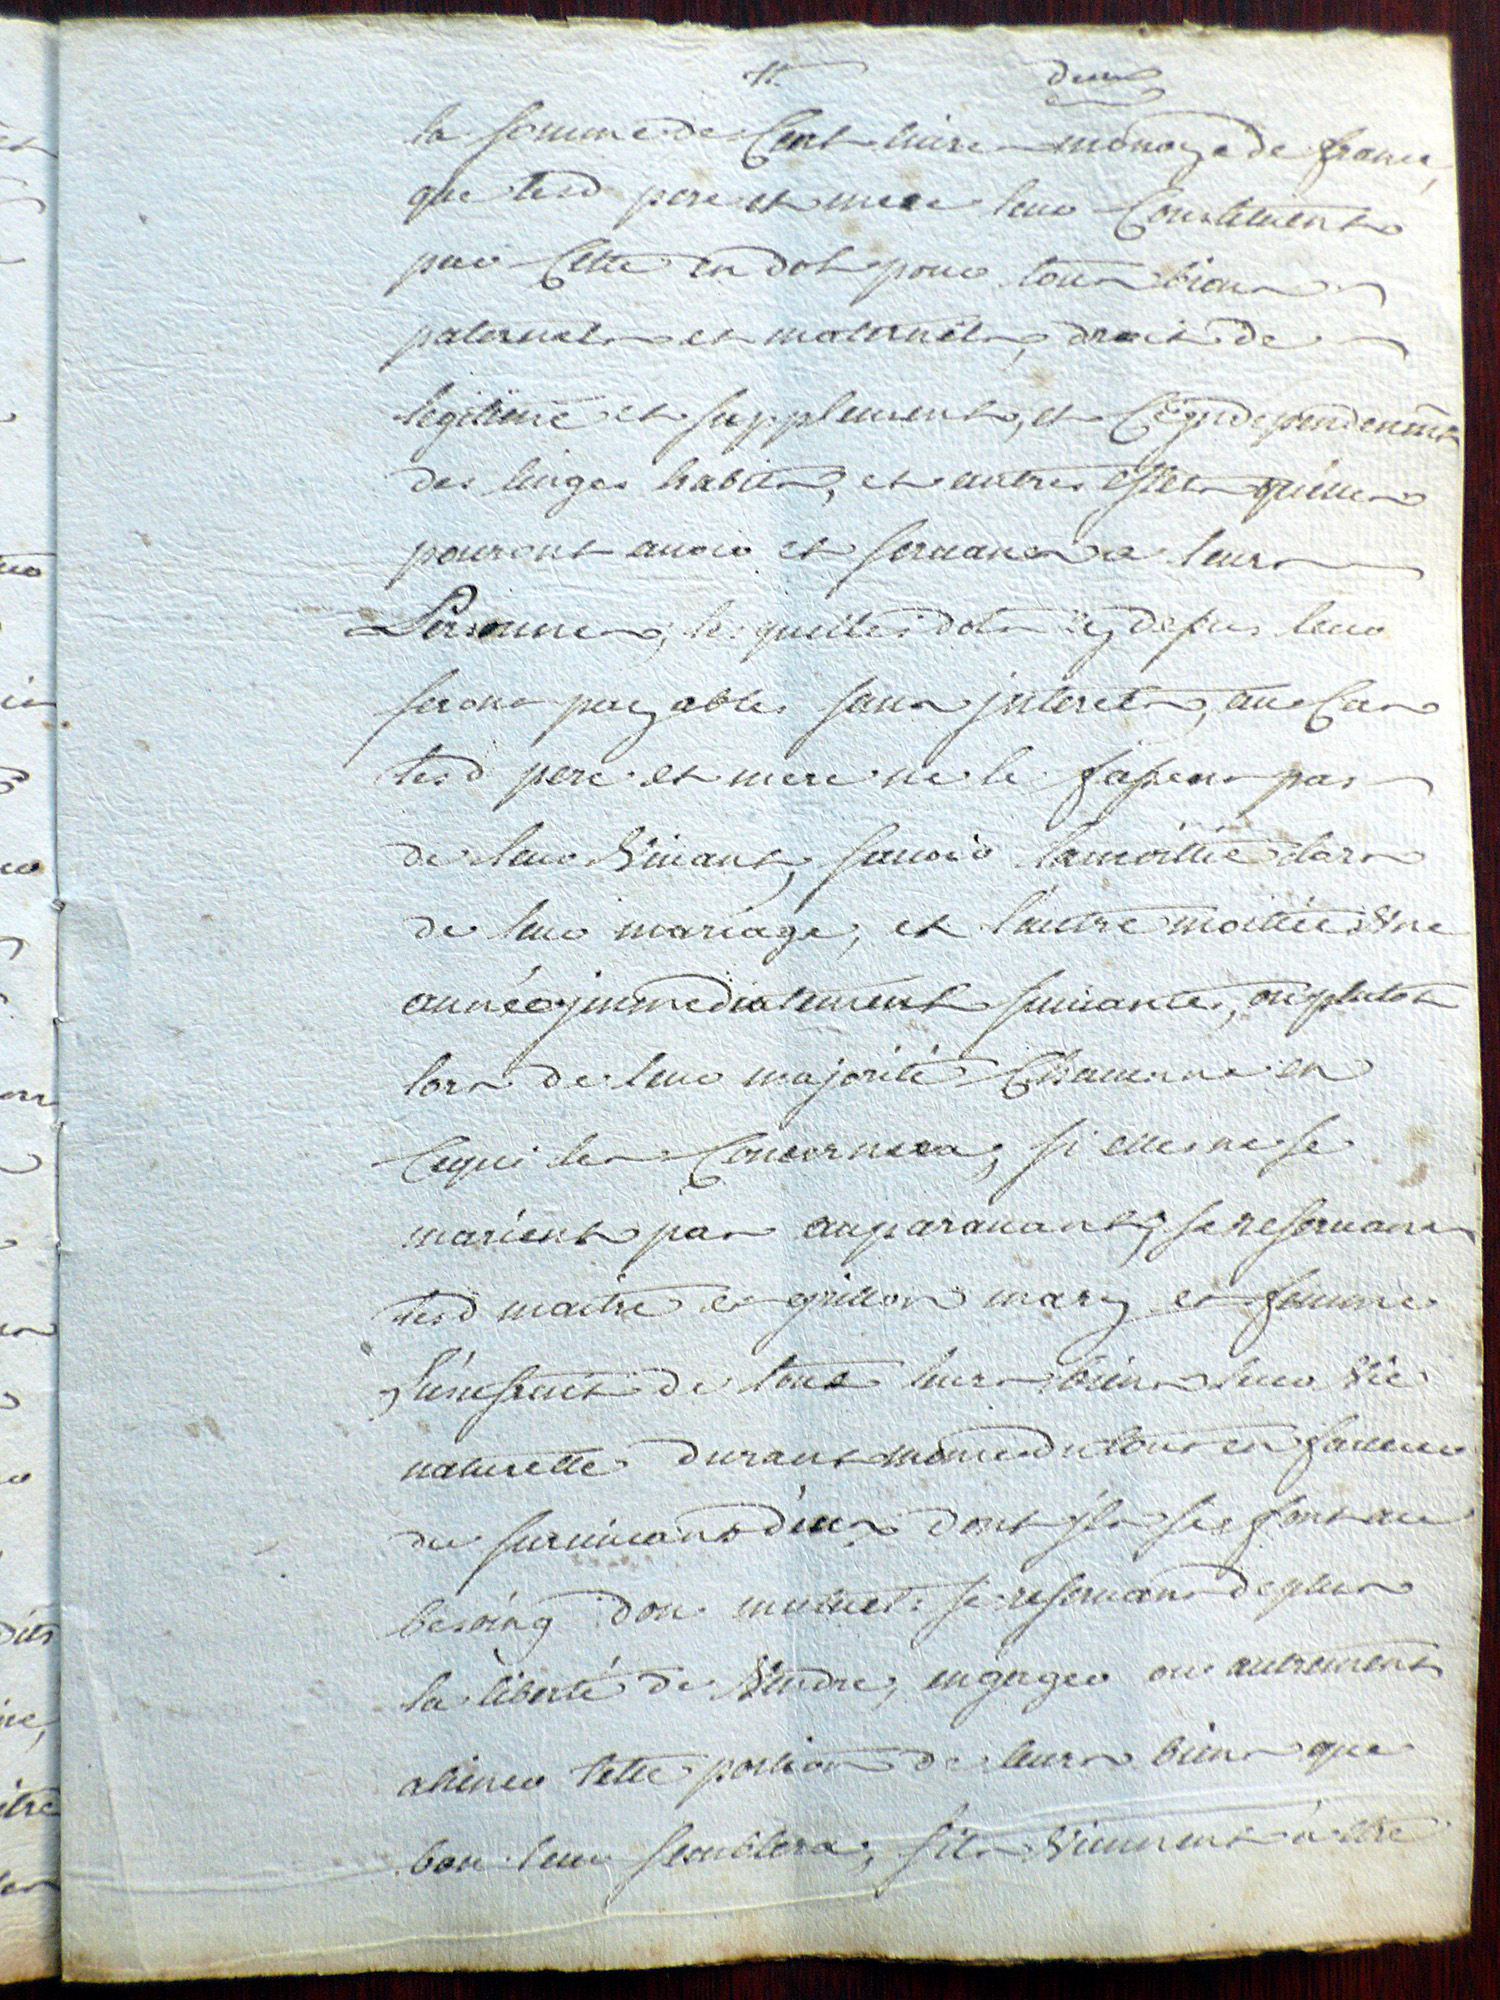 tt. deux
la somme de Cent livres monoye de france,
que lesd pere et mere leur Constituent
par Cette en dot pour tous biens
paternels et maternels, droit de
legitime et supplement, et Ce independenmt
des linges habits, et autres effets qu'elles
pouront avoir et servans a leurs
Personnes, lesquelles dots cy depus leur
seront payables sans jnterets, au Cas
lesd pere et mere ne le fassent pas
de leur Vivant, savoir la moittié lors
de leur mariage, et l'autre moittié Une
année jmmediatement suivante, ou plutot
lors de leur majorité Chacune en
Ce qui les Concernera, si elles ne se
marient pas auparavant; se reservans
lesd maitre et grillon mary et femme
l'usufruit de tous leurs biens leur Vie
naturelle durant même du tout en faveur
du survivant d'eux dont jls se font au
besoing don mutuel se reservans de plus
la liberté de Vendre, engager ou autrement
aliener telle portion de leurs biens que
bon leur semblera, s'ils Viennent à etre